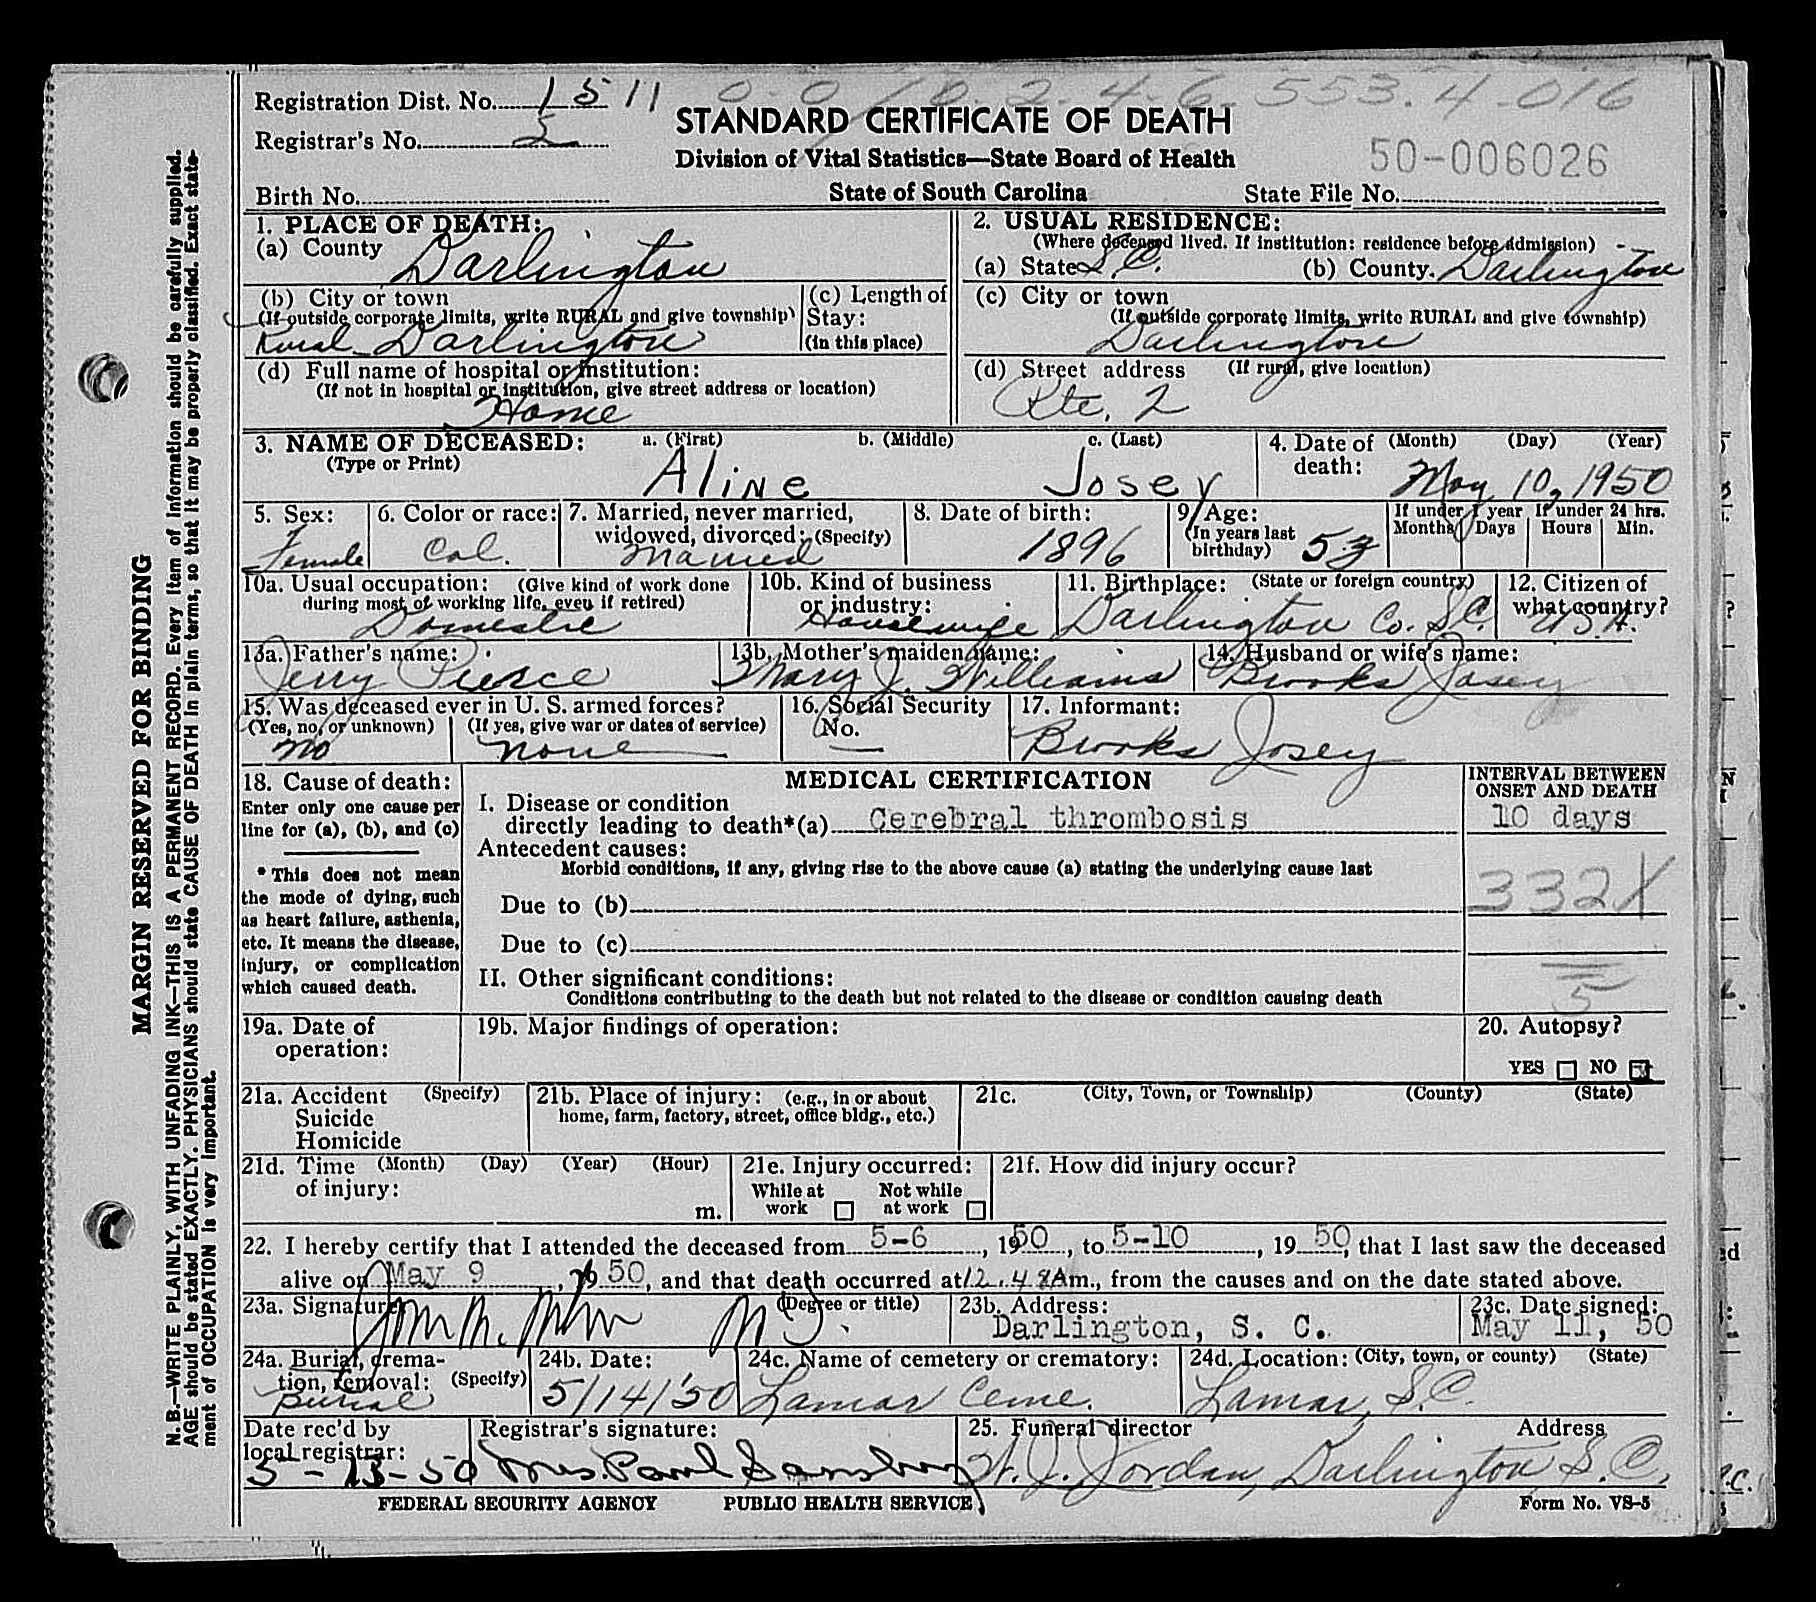 Registration Dist. No. 1511 0-0/0.2.4-6-553.4-016
Registrar's No. 5
STANDARD CERTIFICATE OF DEATH
Division of Vital Statistics—State Board of Health
50-006026
Birth No.
State of South Carolina
State File No.
1. PLACE OF DEATH:
(a) County Darlington
2. USUAL RESIDENCE:
(Where deceased lived. If institution: residence before admission)
(a) State S.C. (b) County. Darlington
(b) City or town
(If outside corporate limits, write RURAL and give township)
Rural - Darlington
(c) Length of
Stay:
(in this place)
(c) City or town
(If outside corporate limits, write RURAL and give township)
Darlington
(d) Full name of hospital or institution:
(If not in hospital or institution, give street address or location)
Home
(d) Street address (If rural, give location)
Rte. 2
3. NAME OF DECEASED: a. (First) b. (Middle) c. (Last)
(Type or Print)
Aline Josey
4. Date of (Month) (Day) (Year)
death:
May 10, 1950
5. Sex:
Female
6. Color or race:
Col.
7. Married, never married,
widowed, divorced: (Specify)
Married
8. Date of birth:
1896
9. Age:
(In years last
birthday)
53
If under 1 year If under 24 hrs.
Months Days Hours Min.
10a. Usual occupation: (Give kind of work done
during most of working life, even if retired)
Domestic
10b. Kind of business
or industry:
Housewife
11. Birthplace: (State or foreign country)
Darlington Co. S.C.
12. Citizen of
what country?
U.S.A.
13a. Father's name:
Jerry Pierce
13b. Mother's maiden name:
Mary J. Williams
14. Husband or wife's name:
Brooks Josey
15. Was deceased ever in U. S. armed forces?
(Yes, no, or unknown) (If yes, give war or dates of service)
no none
16. Social Security
No.
—
17. Informant:
Brooks Josey
18. Cause of death:
Enter only one cause per
line for (a), (b), and (c)
* This does not mean
the mode of dying, such
as heart failure, asthenia,
etc. It means the disease,
injury, or complication
which caused death.
MEDICAL CERTIFICATION
I. Disease or condition
directly leading to death*(a) Cerebral thrombosis
Antecedent causes:
Morbid conditions, if any, giving rise to the above cause (a) stating the underlying cause last
Due to (b)
Due to (c)
II. Other significant conditions:
Conditions contributing to the death but not related to the disease or condition causing death
INTERVAL BETWEEN
ONSET AND DEATH
10 days
332X
5
19a. Date of
operation:
19b. Major findings of operation:
20. Autopsy?
YES NO
21a. Accident (Specify)
Suicide
Homicide
21b. Place of injury: (e.g., in or about
home, farm, factory, street, office bldg., etc.)
21c. (City, Town, or Township) (County) (State)
21d. Time (Month) (Day) (Year) (Hour)
of injury:
m.
21e. Injury occurred:
While at Not while
work at work
21f. How did injury occur?
22. I hereby certify that I attended the deceased from 5-6, 1950, to 5-10, 1950, that I last saw the deceased
alive on May 9, 1950, and that death occurred at 12.48Am., from the causes and on the date stated above.
23a. Signature (Degree or title)
M D.
23b. Address:
Darlington, S. C.
23c. Date signed:
May 11, 50
24a. Burial, crema-
tion, removal: (Specify)
Burial
24b. Date:
5/14/'50
24c. Name of cemetery or crematory:
Lamar Ceme.
24d. Location: (City, town, or county) (State)
Lamar, S.C.
Date rec'd by
local registrar:
5-13-50
Registrar's signature:
Mrs. Paul Sansbury
25. Funeral director Address
W. J. Jordan, Darlington S.C.
FEDERAL SECURITY AGENCY PUBLIC HEALTH SERVICE Form No. VS-5
MARGIN RESERVED FOR BINDING
N. B.—WRITE PLAINLY, WITH UNFADING INK—THIS IS A PERMANENT RECORD. Every item of information should be carefully supplied.
AGE should be stated EXACTLY. PHYSICIANS should state CAUSE OF DEATH in plain terms, so that it may be properly classified. Exact state-
ment of OCCUPATION is very important.